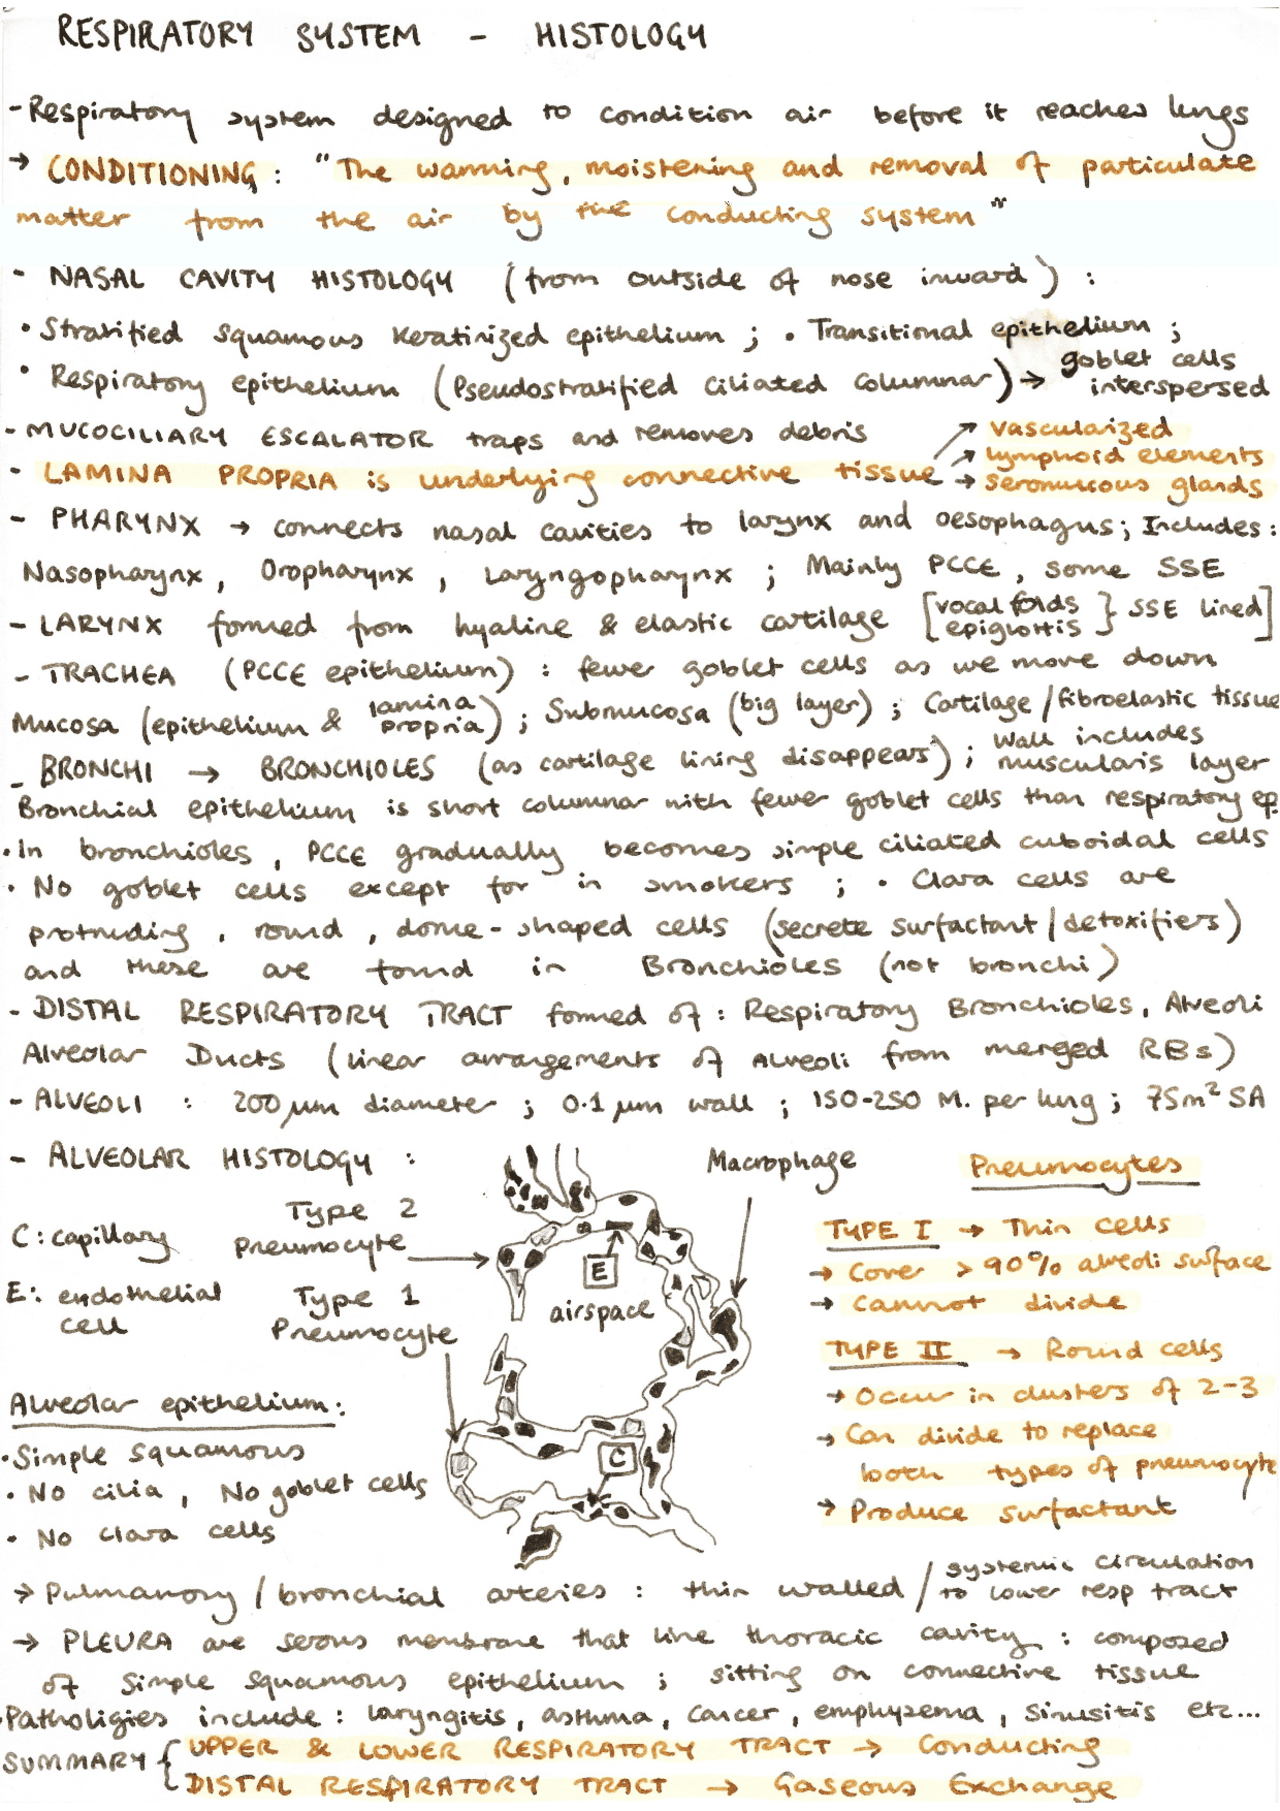 RESPIRATORY SYSTEM - HISTOLOGY
- Respiratory system designed to condition air before it reaches lungs
→ CONDITIONING : "The warming, moistening and removal of particulate
matter from the air by the conducting system"
- NASAL CAVITY HISTOLOGY (from outside of nose inward) :
• Stratified squamous keratinized epithelium ; • Transitional epithelium ;
• Respiratory epithelium (Pseudostratified ciliated columnar) → goblet cells interspersed
- MUCOCILIARY ESCALATOR traps and removes debris
- LAMINA PROPRIA is underlying connective tissue
↗ vascularized
↗ lymphoid elements
→ seromucous glands
- PHARYNX → connects nasal cavities to larynx and oesophagus; Includes :
Nasopharynx, Oropharynx, Laryngopharynx ; Mainly PCCE, some SSE
- LARYNX formed from hyaline & elastic cartilage [vocal folds epiglottis } SSE lined]
- TRACHEA (PCCE epithelium) : fewer goblet cells as we move down
Mucosa (epithelium & lamina propria) ; Submucosa (big layer) ; Cartilage/fibroelastic tissue
- BRONCHI → BRONCHIOLES (as cartilage lining disappears) ; Wall includes muscularis layer
Bronchial epithelium is short columnar with fewer goblet cells than respiratory ep.
• In bronchioles, PCCE gradually becomes simple ciliated cuboidal cells
• No goblet cells except for in smokers ; • Clara cells are
protruding, round, dome-shaped cells (secrete surfactant/detoxifiers)
and these are found in Bronchioles (not bronchi)
- DISTAL RESPIRATORY TRACT formed of : Respiratory Bronchioles, Alveoli
Alveolar Ducts (linear arrangements of Alveoli from merged RBs)
- ALVEOLI : 200 µm diameter ; 0.1 µm wall ; 150-250 M. per lung ; 75m² SA
- ALVEOLAR HISTOLOGY :
C : capillary
E : endothelial
cell
Type 2
Pneumocyte
Type 1
Pneumocyte
E
airspace
C
Macrophage
Alveolar epithelium :
• Simple squamous
• No cilia, No goblet cells
• No clara cells
Pneumocytes
TYPE I → Thin cells
→ Cover > 90% alveoli surface
→ Cannot divide
TYPE II → Round cells
→ Occur in clusters of 2-3
→ Can divide to replace
both types of pneumocyte
→ Produce surfactant
→ Pulmanory / bronchial arteries : thin walled / systemic circulation to lower resp tract
→ PLEURA are serous membrane that line thoracic cavity : composed
of simple squamous epithelium ; sitting on connective tissue
• Patholigies include : laryngitis, asthma, cancer, emphyzema, sinusitis etc...
SUMMARY { UPPER & LOWER RESPIRATORY TRACT → Conducting
DISTAL RESPIRATORY TRACT → Gaseous Exchange